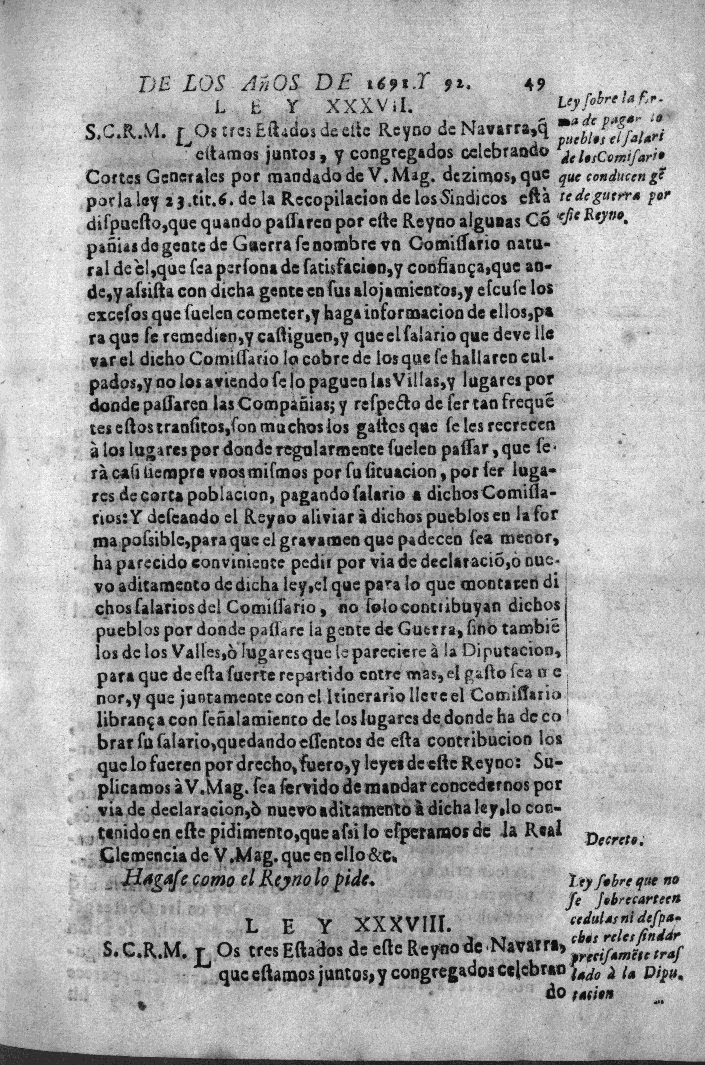 DE LOS AñOS DE 1691.Y 92. 49
LEY XXXVII.
S.C.R.M. LOs tres Estados de este Reyno de Navarra,q̃
estamos juntos, y congregados celebrando
Cortes Generales por mandado de V. Mag. dezimos, que
por la ley 23.tit.6. de la Recopilacion de los Sindicos està
dispuesto,que quando passaren por este Reyno algunas Cõ
pañias de gente de Guerra se nombre vn Comissario natu-
ral de èl,que sea persona de satisfacion,y confiança,que an-
de,y assista con dicha gente en sus alojamientos,y escuse los
excesos que suelen cometer,y haga informacion de ellos,pa
ra que se remedien,y castiguen,y que el salario que deve lle
var el dicho Comissario lo cobre de los que se hallaren cul-
pados,y no los aviendo se lo paguen las Villas,y lugares por
donde passaren las Compañias; y respecto de ser tan frequẽ
tes estos transitos,son muchos los gastos que se les recrecen
à los lugares por donde regularmente suelen passar, que se-
rà casi siempre vnos mismos por su situacion, por ser luga-
res de corta poblacion, pagando salario a dichos Comissa-
rios: Y deseando el Reyno aliviar à dichos pueblos en la for
ma possible,para que el gravamen que padecen sea menor,
ha parecido conviniente pedir por via de declaraciõ,ò nue-
vo aditamento de dicha ley,el que para lo que montaren di
chos salarios del Comissario, no solo contribuyan dichos
pueblos por donde passare la gente de Guerra, sino tambiẽ
los de los Valles,ò lugares que le pareciere à la Diputacion,
para que de esta suerte repartido entre mas, el gasto sea me
nor, y que juntamente con el Itinerario lleve el Comissario
librança con señalamiento de los lugares de donde ha de co
brar su salario,quedando essentos de esta contribucion los
que lo fueren por drecho, fuero, y leyes de este Reyno: Su-
plicamos à V. Mag. sea servido de mandar concedernos por
via de declaracion,ò nuevo aditamento à dicha ley,lo con-
tenido en este pidimento,que assi lo esperamos de la Real
Clemencia de V.Mag. que en ello &c.
Hagase como el Reyno lo pide.
LEY XXXVIII.
S.C.R.M. LOs tres Estados de este Reyno de Navarra,
que estamos juntos, y congregados celebran
do
Ley sobre la for-
ma de pagar lo
pueblos el salari
de los Comisario
que conducen gẽ
te de guerra por
este Reyno.
Decreto.
Ley sobre que no
se sobrecarteen
cedulas ni despa-
chos reles sin dar
precisamẽte tras
lado à la Dipu.
tacion